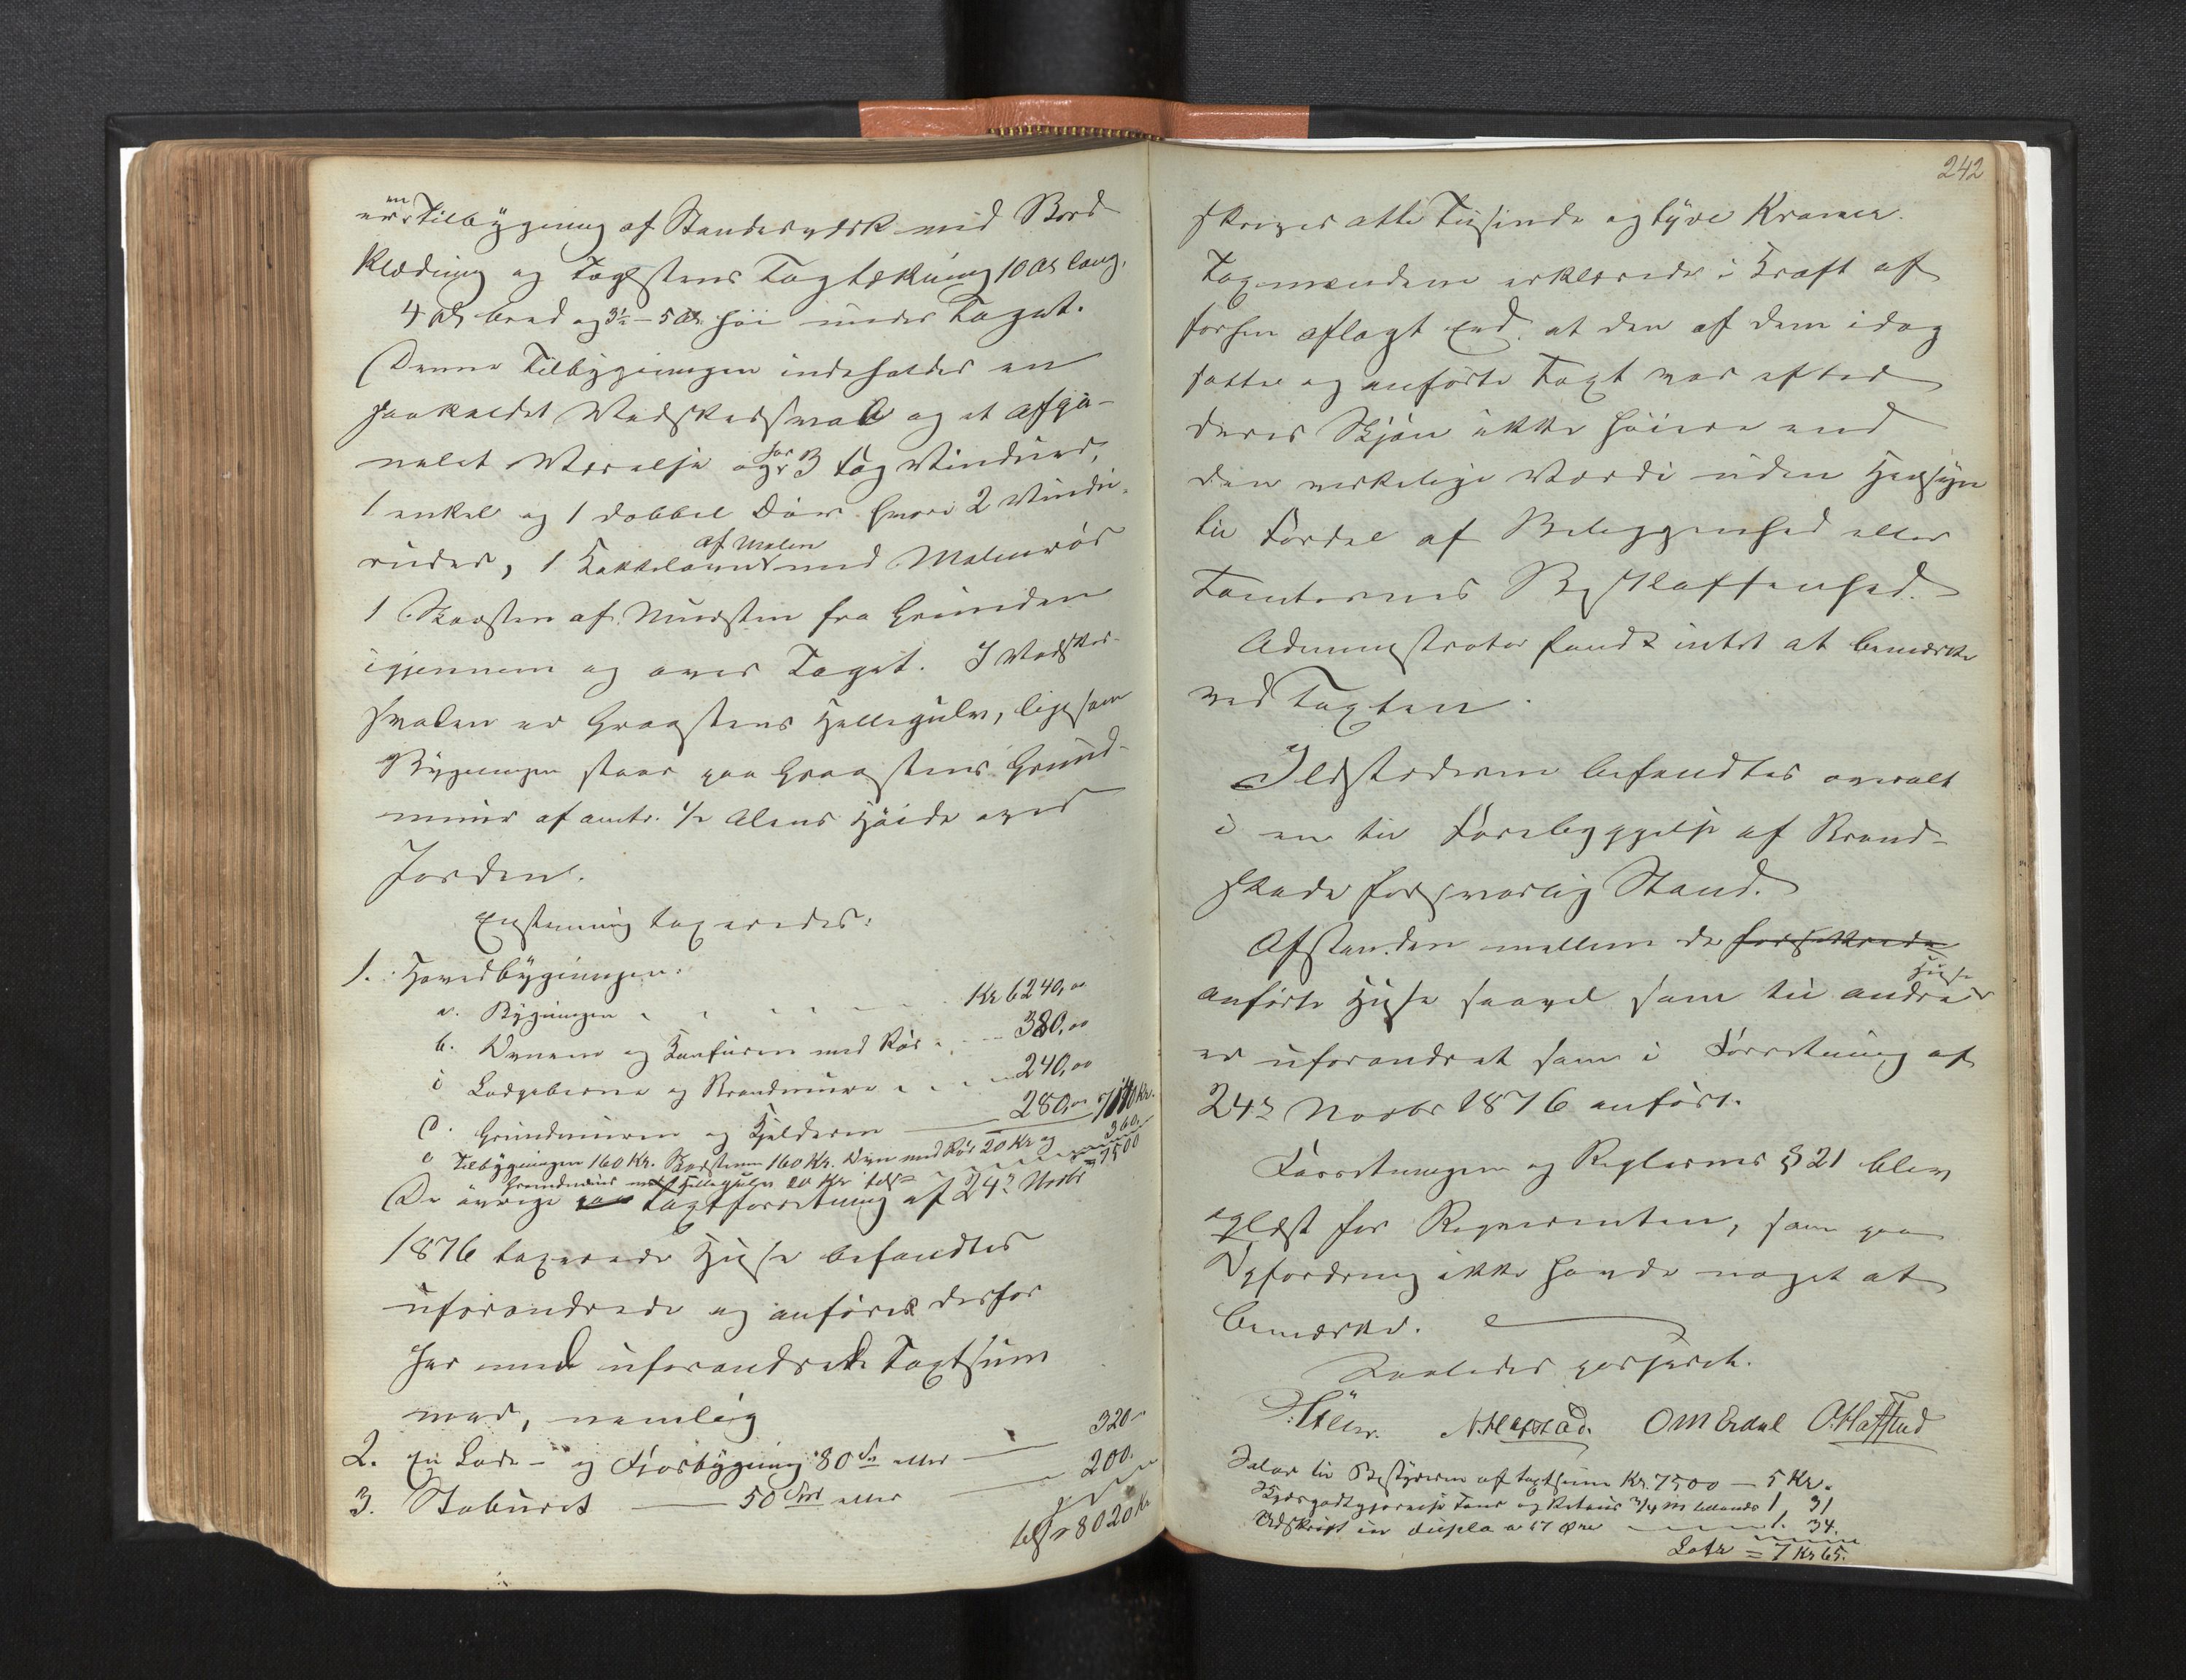 en
er Tilbygning af Standerværk med Bord
klædning og Taglstens Tagtækning 10 Al lang,
4 Al bred og 3½ – 5 Al. høi under Taget.
Denne Tilbygningen indeholder en
saakaldet Vadskersval og et Afgi-
nalet Værelse og har 3 Fag Vinduer,
1 enkel og 1 dobbel Dør hvori 2 Vindu-
ruder, 1 Kakkelovn af Malm med Malmrør
1 Skorsten af Mursten fra Grunden
igjennem og over Taget. I Vadsker-
svalen er Graastens Hellegulv, ligesom
Bygningen staar paa Graastens Grund-
muur af omtr. ½ Alens Høide over
Jorden.
Enstemmig taxeredes:
1. Hovedbygningen:
a. Bygningen Kr 6240,00
b. Ovnene og Komfuren med Rør 380,00
c Ladepiberne og Brandmure 240,00
d. Grundmuren og Kjelderen 280,00 7140 Kr.
e Tilbygningen 160 Kr. Skorstenen 160 Kr. Ovn med Rør 20 Kr og 360.
Grundmuur med Hellegulv 20 Kr tils= = 7500
De øvrige ved Taxtforretning af 24de Novbr
1876 taxerede Huse befandtes
uforandrede og anføres derfor
her med uforandrede Taxtsum
mer, nemlig
2. En Lade- og Fjosbygning 80 Sp eller 320
3. Staburet 50 Spd eller 200.
tils = 8020 Kr
242
skriver otte Tusinde og tyve Kroner.
Taxmændene erklærede i Kraft af
forhen aflagt Eed, at den af dem idag
satte og anførte Taxt var efter
deres Skjøn ikke høiere end
den virkelige Værdi uden Hensyn
til Fordel af Beliggenhed eller
Tomternes Beskaffenhed.
Administrator fandt intet at bemærke
ved Taxten.
Ildstederne befandtes overalt
i en til Forebyggelse af Brand-
skade forsvarlig Stand.
Afstanden mellem de forsikrede
anførte Huse saavel som til andre Huse
er uforandret som i Forretning af
24de Novbr 1876 anført.
Forretningen og Reglernes § 21 blev
oplæst for Reqvirenten, som paa
Opfordring ikke havde noget at
bemærke.
Saaledes passeret.
N. Hafstad. O M Erdal O. Haffstad
Salær til Bestyreren af Taxtsum Kr. 7500 — 5 Kr.
Skydsgodtgjørelse Tour og Retour 3/4 M tillands 1, 31
Udskrift in duplo a 67 Øre 1. 34.
Latr = 7 Kr 65.